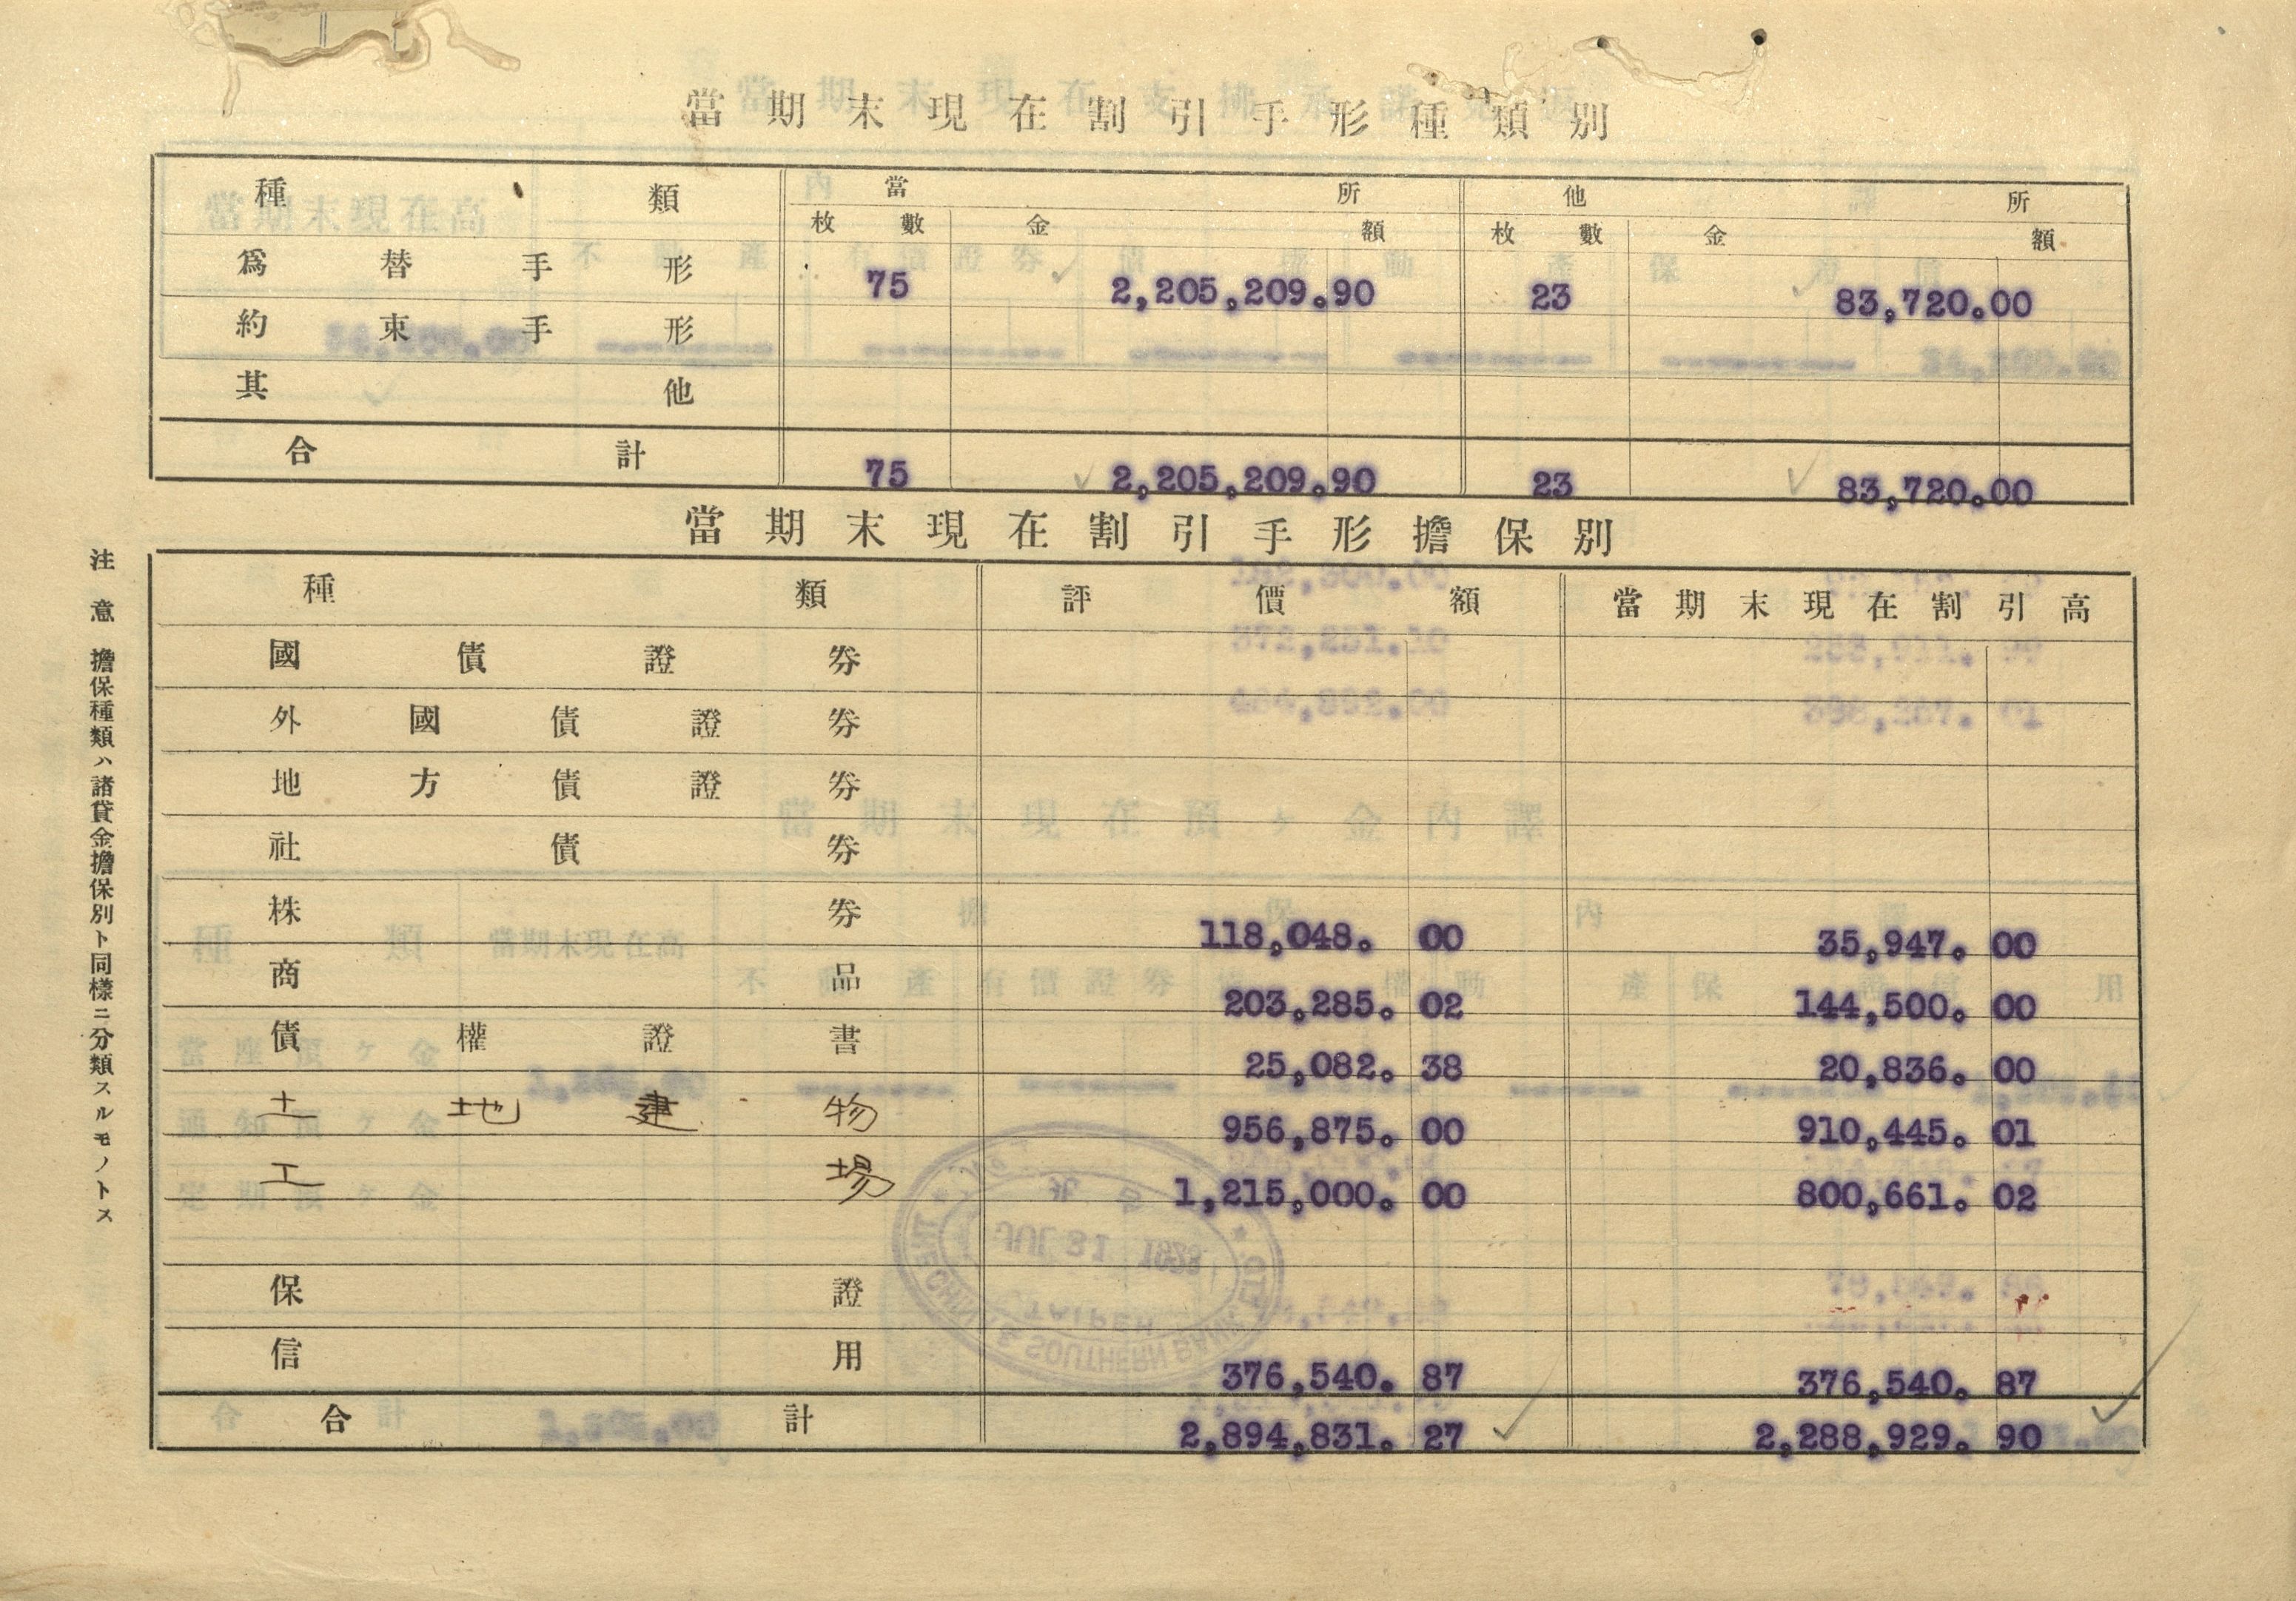 當期末現在割引手形種類別
種類 當所 他所
枚數 金額 枚數 金額
爲替手形 75 2,205,209.90 23 83,720.00
約束手形
其他
合計 75 2,205,209.90 23 83,720.00
當期末現在割引手形擔保別
種類 評價額 當期末現在割引高
國債證券
外國債證券
地方債證券
社債券
株券 118,048.00 35,947.00
商品 203,285.02 144,500.00
債權證書 25,082.38 20,836.00
土地建物 956,875.00 910,445.01
工場 1,215,000.00 800,661.02
保證
信用 376,540.87 376,540.87
合計 2,894,831.27 2,288,929.90
注意 擔保種類ハ諸貸金擔保別ト同樣ニ分類スルモノトス